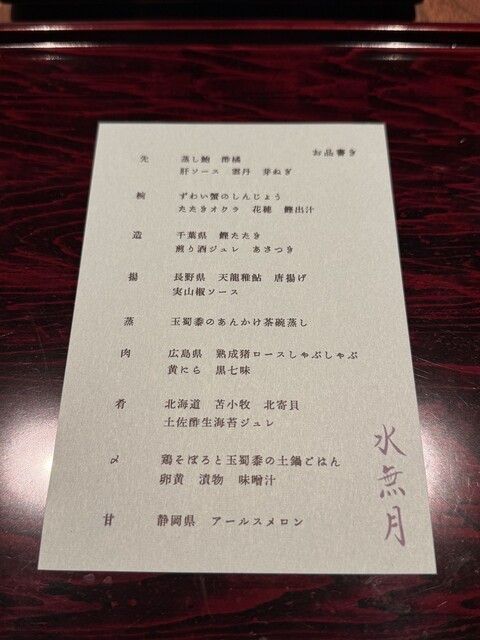 お品書き
先 蒸し鮑 酢橘
肝ソース 雲丹 芽ねぎ
椀 ずわい蟹のしんじょう
たたきオクラ 花穂 鰹出汁
造 千葉県 鰹たたき
煎り酒ジュレ あさつき
揚 長野県 天龍稚鮎 唐揚げ
実山椒ソース
蒸 玉蜀黍のあんかけ茶碗蒸し
肉 広島県 熟成猪ロースしゃぶしゃぶ
黄にら 黒七味
肴 北海道 苫小牧 北寄貝
土佐酢生海苔ジュレ
〆 鶏そぼろと玉蜀黍の土鍋ごはん
卵黄 漬物 味噌汁
甘 静岡県 アールスメロン
水無月